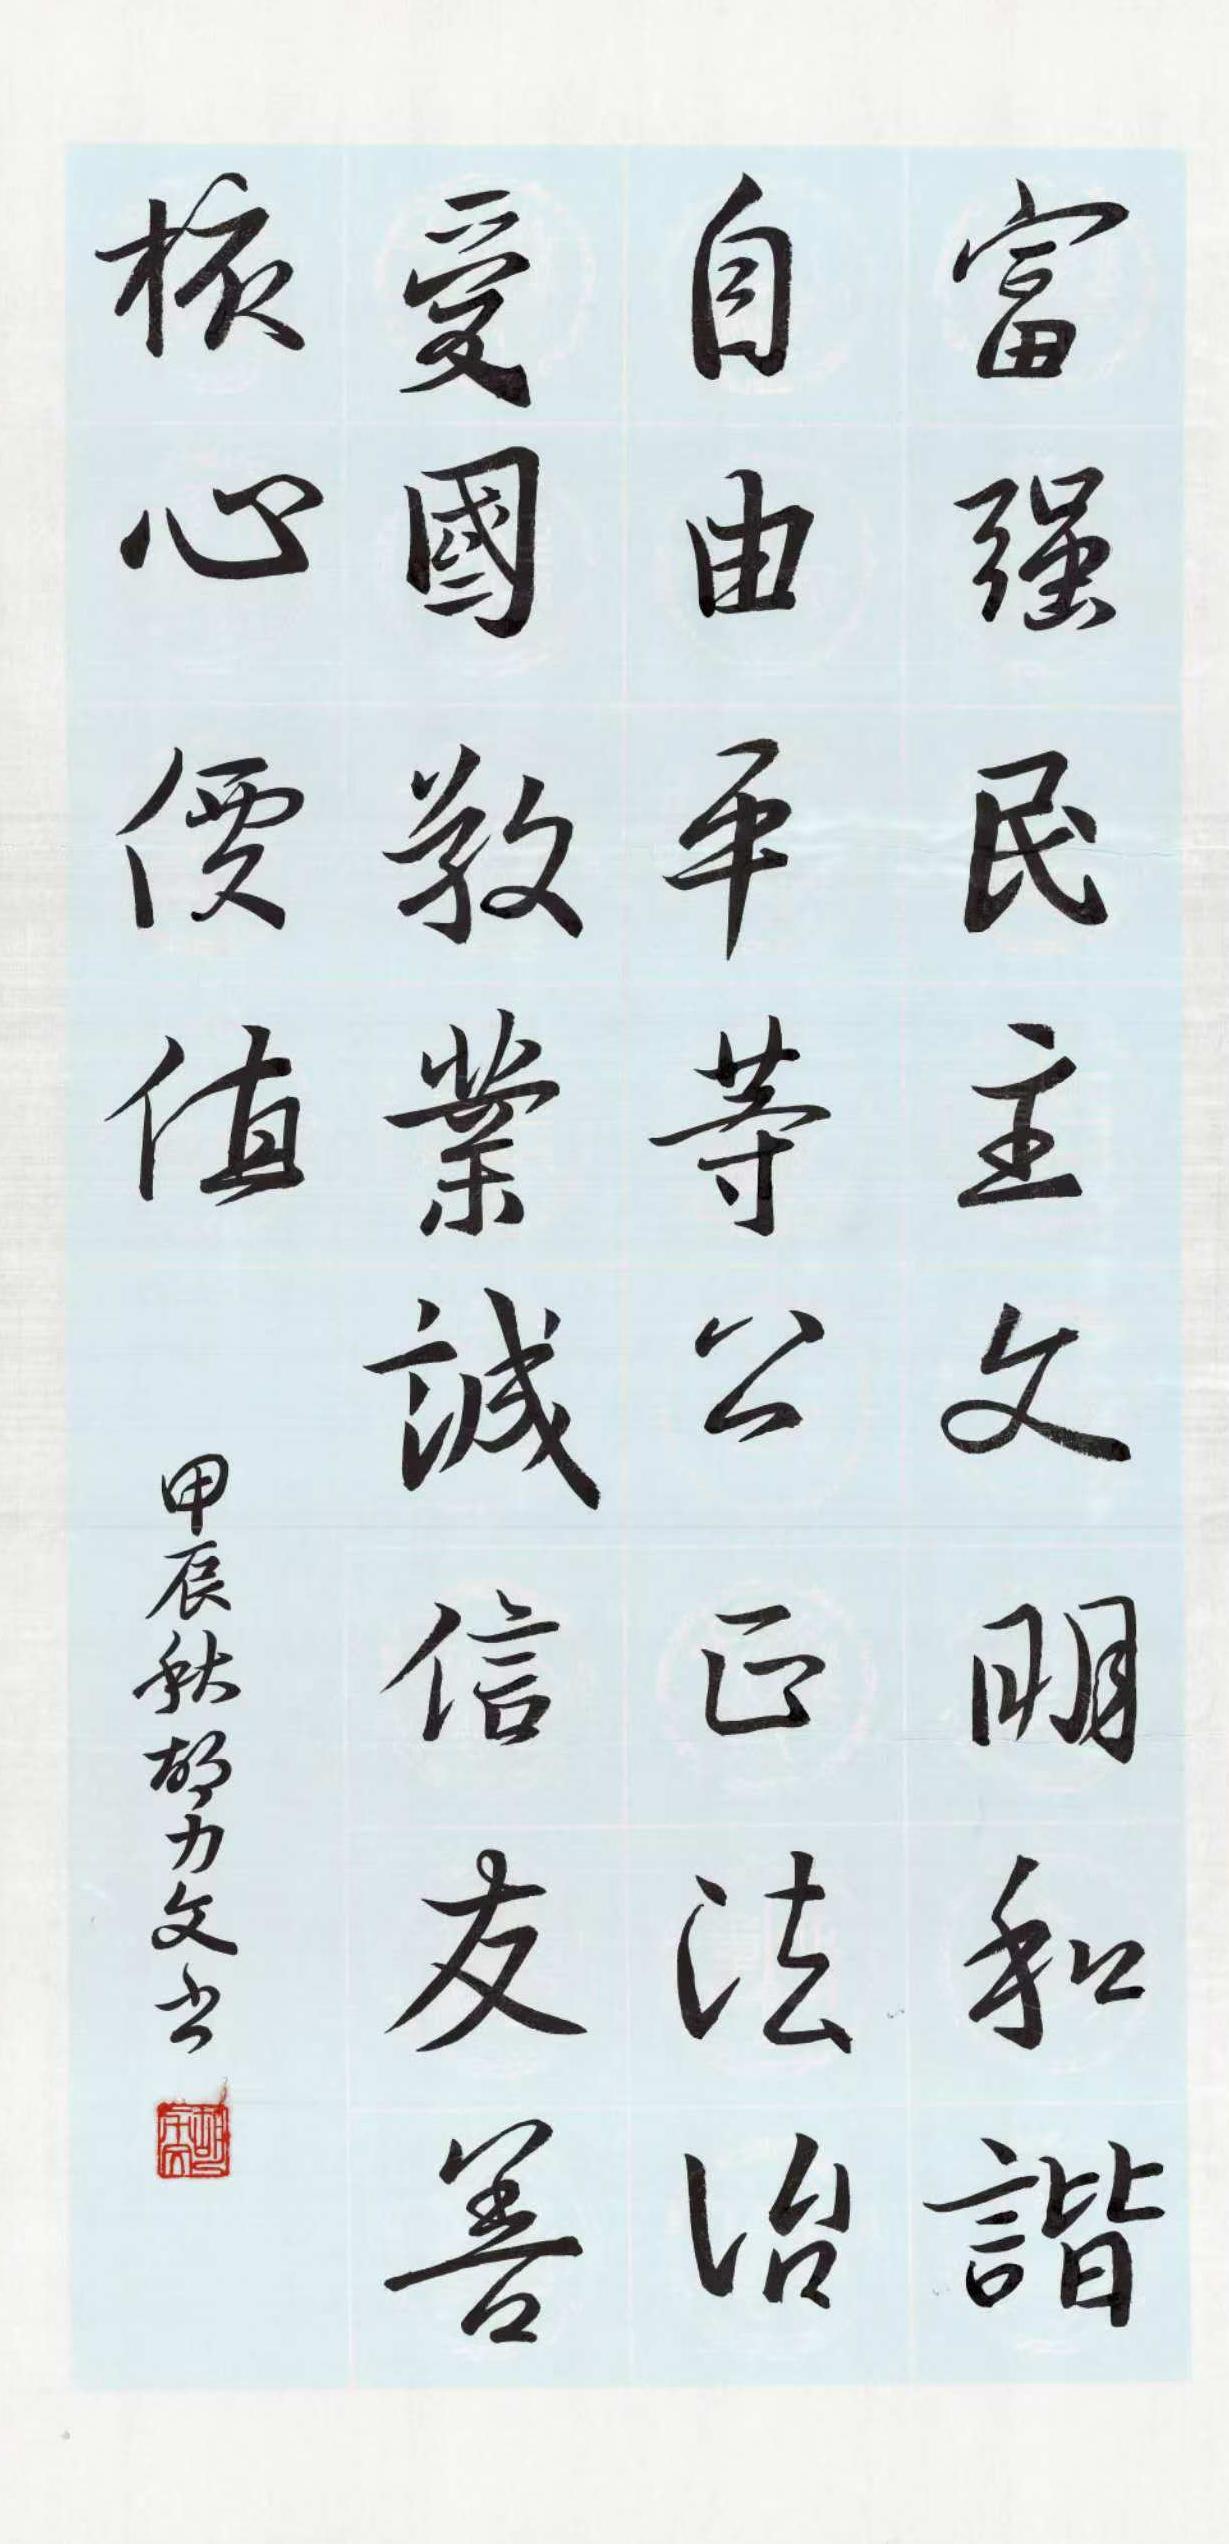 富强民主文明和諧
自由平等公正法治
愛國敬業誠信友善
核心價值
甲辰秋胡力文书